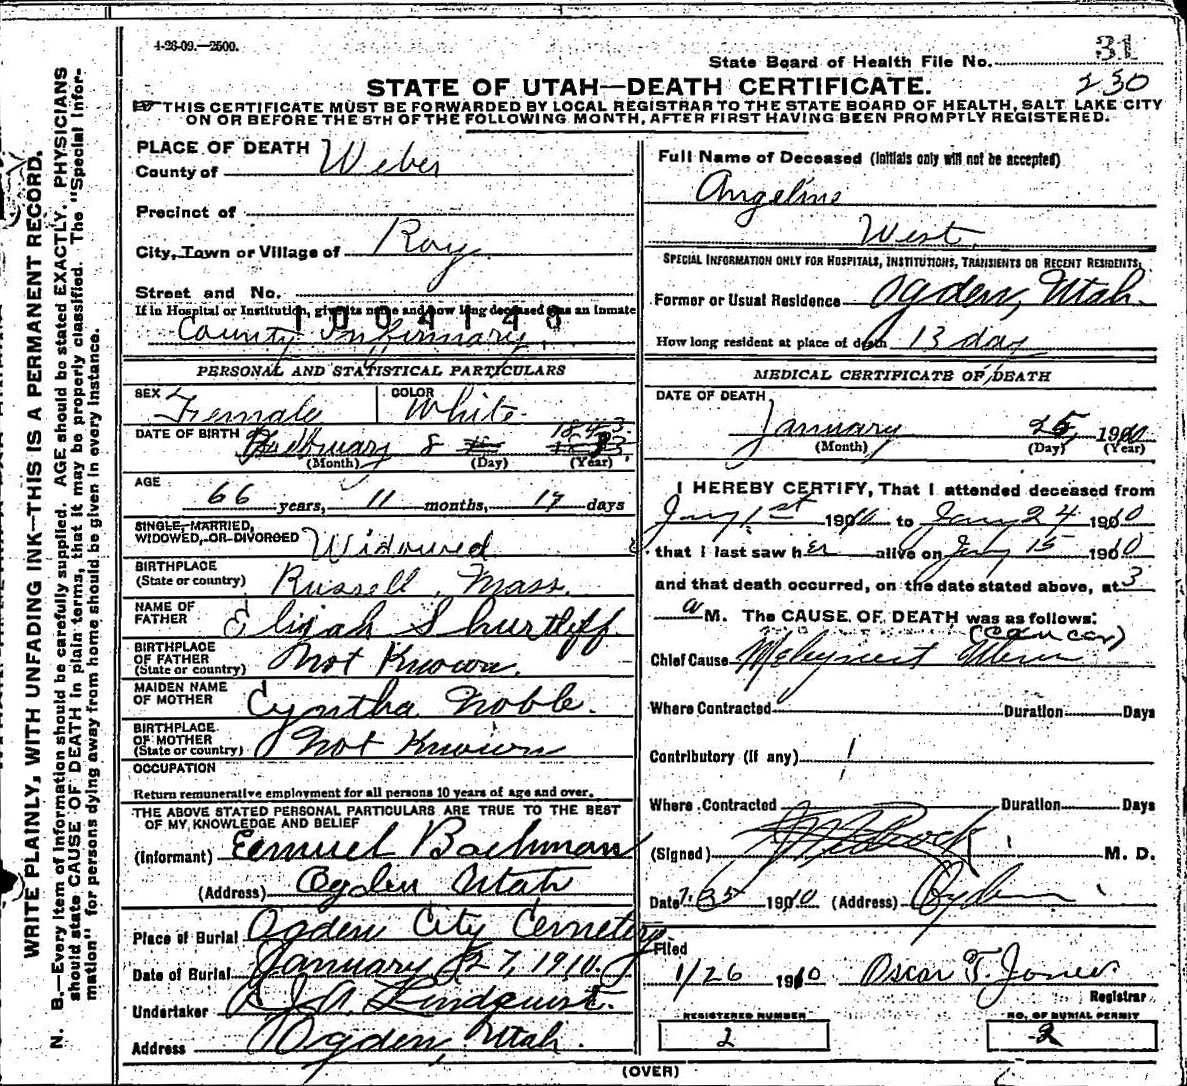 4-26-09.—2500.
31
State Board of Health File No.
230
STATE OF UTAH—DEATH CERTIFICATE.
THIS CERTIFICATE MUST BE FORWARDED BY LOCAL REGISTRAR TO THE STATE BOARD OF HEALTH, SALT LAKE CITY
ON OR BEFORE THE 5TH OF THE FOLLOWING MONTH, AFTER FIRST HAVING BEEN PROMPTLY REGISTERED.
WRITE PLAINLY, WITH UNFADING INK—THIS IS A PERMANENT RECORD.
N. B.—Every item of information should be carefully supplied. AGE should be stated EXACTLY. PHYSICIANS
should state CAUSE OF DEATH in plain terms, that it may be properly classified. The "Special Infor-
mation" for persons dying away from home should be given in every instance.
PLACE OF DEATH
County of Weber
Precinct of
City, Town or Village of Roy
Street and No.
If in Hospital or Institution, give its name and how long deceased was an inmate
1004148
County Infirmary
PERSONAL AND STATISTICAL PARTICULARS
SEX Female
COLOR White
DATE OF BIRTH February 8 1843
(Month) (Day) (Year)
AGE
66 years, 11 months, 17 days
SINGLE, MARRIED,
WIDOWED, OR DIVORCED Widowed
BIRTHPLACE
(State or country) Russell, Mass.
NAME OF
FATHER Elijah Shurtleff
BIRTHPLACE
OF FATHER
(State or country) Not Known.
MAIDEN NAME
OF MOTHER Cyntha Noble.
BIRTHPLACE
OF MOTHER
(State or country) Not Known
OCCUPATION
Return remunerative employment for all persons 10 years of age and over.
THE ABOVE STATED PERSONAL PARTICULARS ARE TRUE TO THE BEST
OF MY KNOWLEDGE AND BELIEF
(Informant) Bachman
(Address) Ogden Utah
Place of Burial Ogden City Cemetery
Date of Burial January 27, 1910.
Undertaker Lindquist.
Address Ogden, Utah.
Full Name of Deceased (Initials only will not be accepted)
Angeline
West
SPECIAL INFORMATION ONLY FOR HOSPITALS, INSTITUTIONS, TRANSIENTS OR RECENT RESIDENTS.
Former or Usual Residence Ogden, Utah.
How long resident at place of death 13 days
MEDICAL CERTIFICATE OF DEATH
DATE OF DEATH
January 25, 1910
(Month) (Day) (Year)
I HEREBY CERTIFY, That I attended deceased from
Jany 1st 1910 to Jany 24 1910
that I last saw her alive on Jany 15 1910
and that death occurred, on the date stated above, at 3
a M. The CAUSE OF DEATH was as follows:
(cancer)
Chief Cause
Where Contracted Duration Days
Contributory (if any)
Where Contracted Duration Days
(Signed) M. D.
Date 1910 (Address) Ogden
Filed
1/26 1910 Oscar T. Jones
Registrar
REGISTERED NUMBER
2
NO. OF BURIAL PERMIT
2
(OVER)